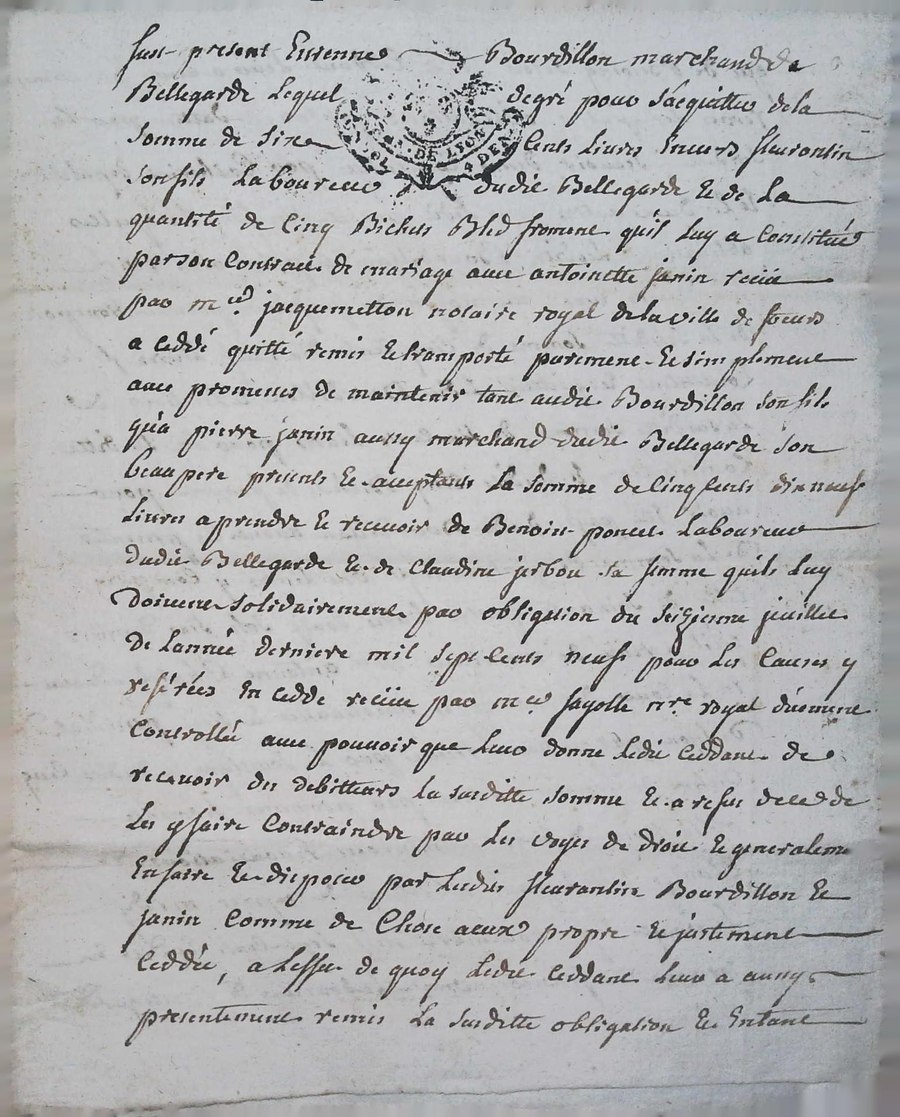 fust present Estienne Bourdillon marchand de
Bellegarde Lequel de gré pour sacquitter dela
DE LYON 4 DEN
Somme de Six Cents Livres Envers fleurantin
Son fils Laboureur dudit Bellegarde Et de La
quantité de Cinq Bichets Bled froment qu'il Luy a Constitué
par son Contract de mariage avec antoinette janin receu
par me. jacquemetton notaire royal dela ville de feurs
a ceddé quitté remis Et transporté purement Et Simplement
avec promesses de maintenir tant audit Bourdillon Son fils
qu'a pierre janin aussy marchand dudit Bellegarde Son
beaupere presents Et aceptants La Somme de Cinq Cents dix neuf
Livres a prendre Et recevoir de Benoist poncet Laboureur
dudit Bellegarde Et de Claudine sa femme quils Luy
doivent Solidairement par obligation du Seizienne juillet
de Lannée derniere mil Sept Cents neuf pour Les Causes y
referées En cedde receue par me fayolle nre royal düement
Controllée avec pouvoir que Leur donne Ledit Ceddant de
recevoir des debitteurs La Susditte Somme Et a refus de ce de
Les y faire Contraindre par Les voyes de droit Et generalemt
En faire Et disposer par Lesdits fleurantin Bourdillon Et
janin Comme de Chose a eux propre Et justement
Ceddée, a Leffet de quoy Ledit Ceddant Leur a aussy
presentement remis La Susditte obligation Et Entant